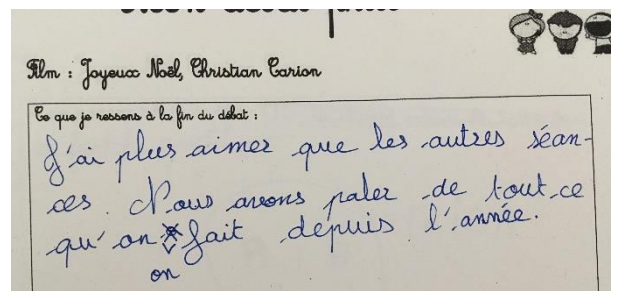 Film : Joyeux Noël, Christian Carion
Ce que je ressens à la fin du débat :
J'ai plus aimer que les autres séan-
ces. Nous avons paler de tout ce
qu'on fait depuis l'année.
on